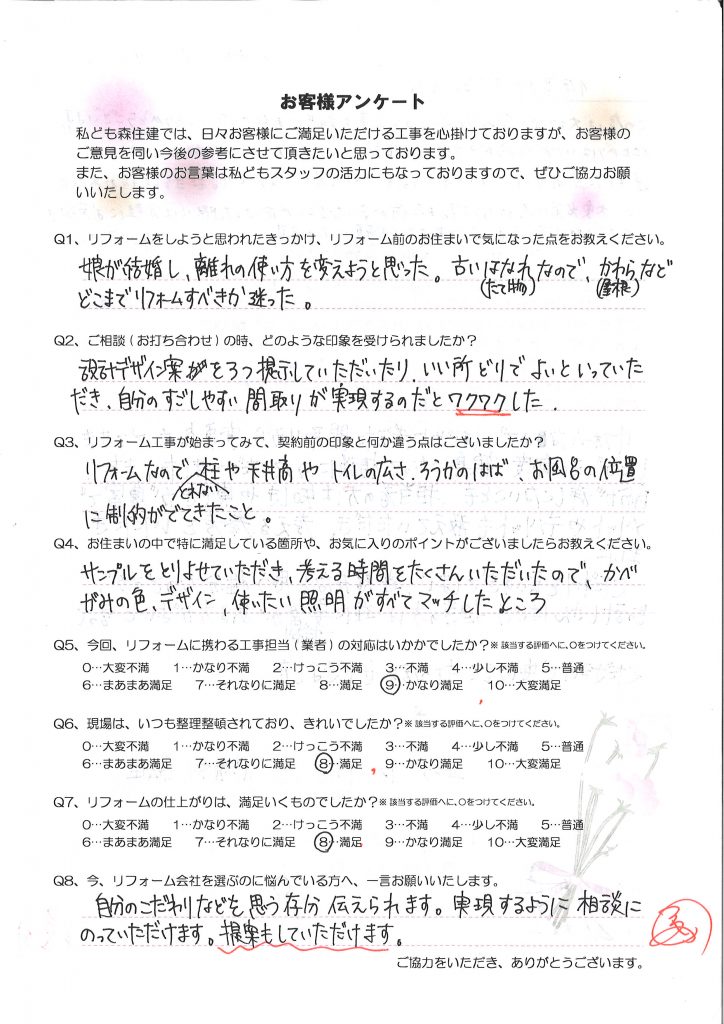 お客様アンケート
私ども森住建では、日々お客様にご満足いただける工事を心掛けておりますが、お客様の
ご意見を伺い今後の参考にさせて頂きたいと思っております。
また、お客様のお言葉は私どもスタッフの活力にもなっておりますので、ぜひご協力お願
いいたします。
Q1、リフォームをしようと思われたきっかけ、リフォーム前のお住まいで気になった点をお教えください。
娘が結婚し、離れの使い方を変えようと思った。古いはなれなので、かわらなど
(たて物) (屋根)
どこまでリフォームすべきか迷った。
Q2、ご相談(お打ち合わせ)の時、どのような印象を受けられましたか?
設計デザイン案が2つ提示していただいたり、いい所どりでよいといっていた
だき、自分のすごしやすい間取りが実現するのだとワクワクした.
Q3、リフォーム工事が始まってみて、契約前の印象と何か違う点はございましたか?
リフォームなので柱や天井高やトイレの広さ、ろうかのはば、お風呂の位置
とれない
に制約がでてきたこと。
Q4、お住まいの中で特に満足している箇所や、お気に入りのポイントがございましたらお教えください。
サンプルをとりよせていただき、考える時間をたくさんいただいたので、かべ
がみの色、デザイン、使いたい照明がすべてマッチしたところ
Q5、今回、リフォームに携わる工事担当(業者)の対応はいかかでしたか?※該当する評価へに、〇をつけてください。
0…大変不満 1…かなり不満 2…けっこう不満 3…不満 4…少し不満 5…普通
6…まあまあ満足 7…それなりに満足 8…満足 9…かなり満足 10…大変満足
Q6、現場は、いつも整理整頓されており、きれいでしたか?※該当する評価へに、〇をつけてください。
0…大変不満 1…かなり不満 2…けっこう不満 3…不満 4…少し不満 5…普通
6…まあまあ満足 7…それなりに満足 8…満足 9…かなり満足 10…大変満足
Q7、リフォームの仕上がりは、満足いくものでしたか?※該当する評価へに、〇をつけてください。
0…大変不満 1…かなり不満 2…けっこう不満 3…不満 4…少し不満 5…普通
6…まあまあ満足 7…それなりに満足 8…満足 9…かなり満足 10…大変満足
Q8、今、リフォーム会社を選ぶのに悩んでいる方へ、一言お願いいたします。
自分のこだわりなどを思う存分伝えられます。実現するように相談に
のっていただけます。提案もしていただけます。
ご協力をいただき、ありがとうございます。